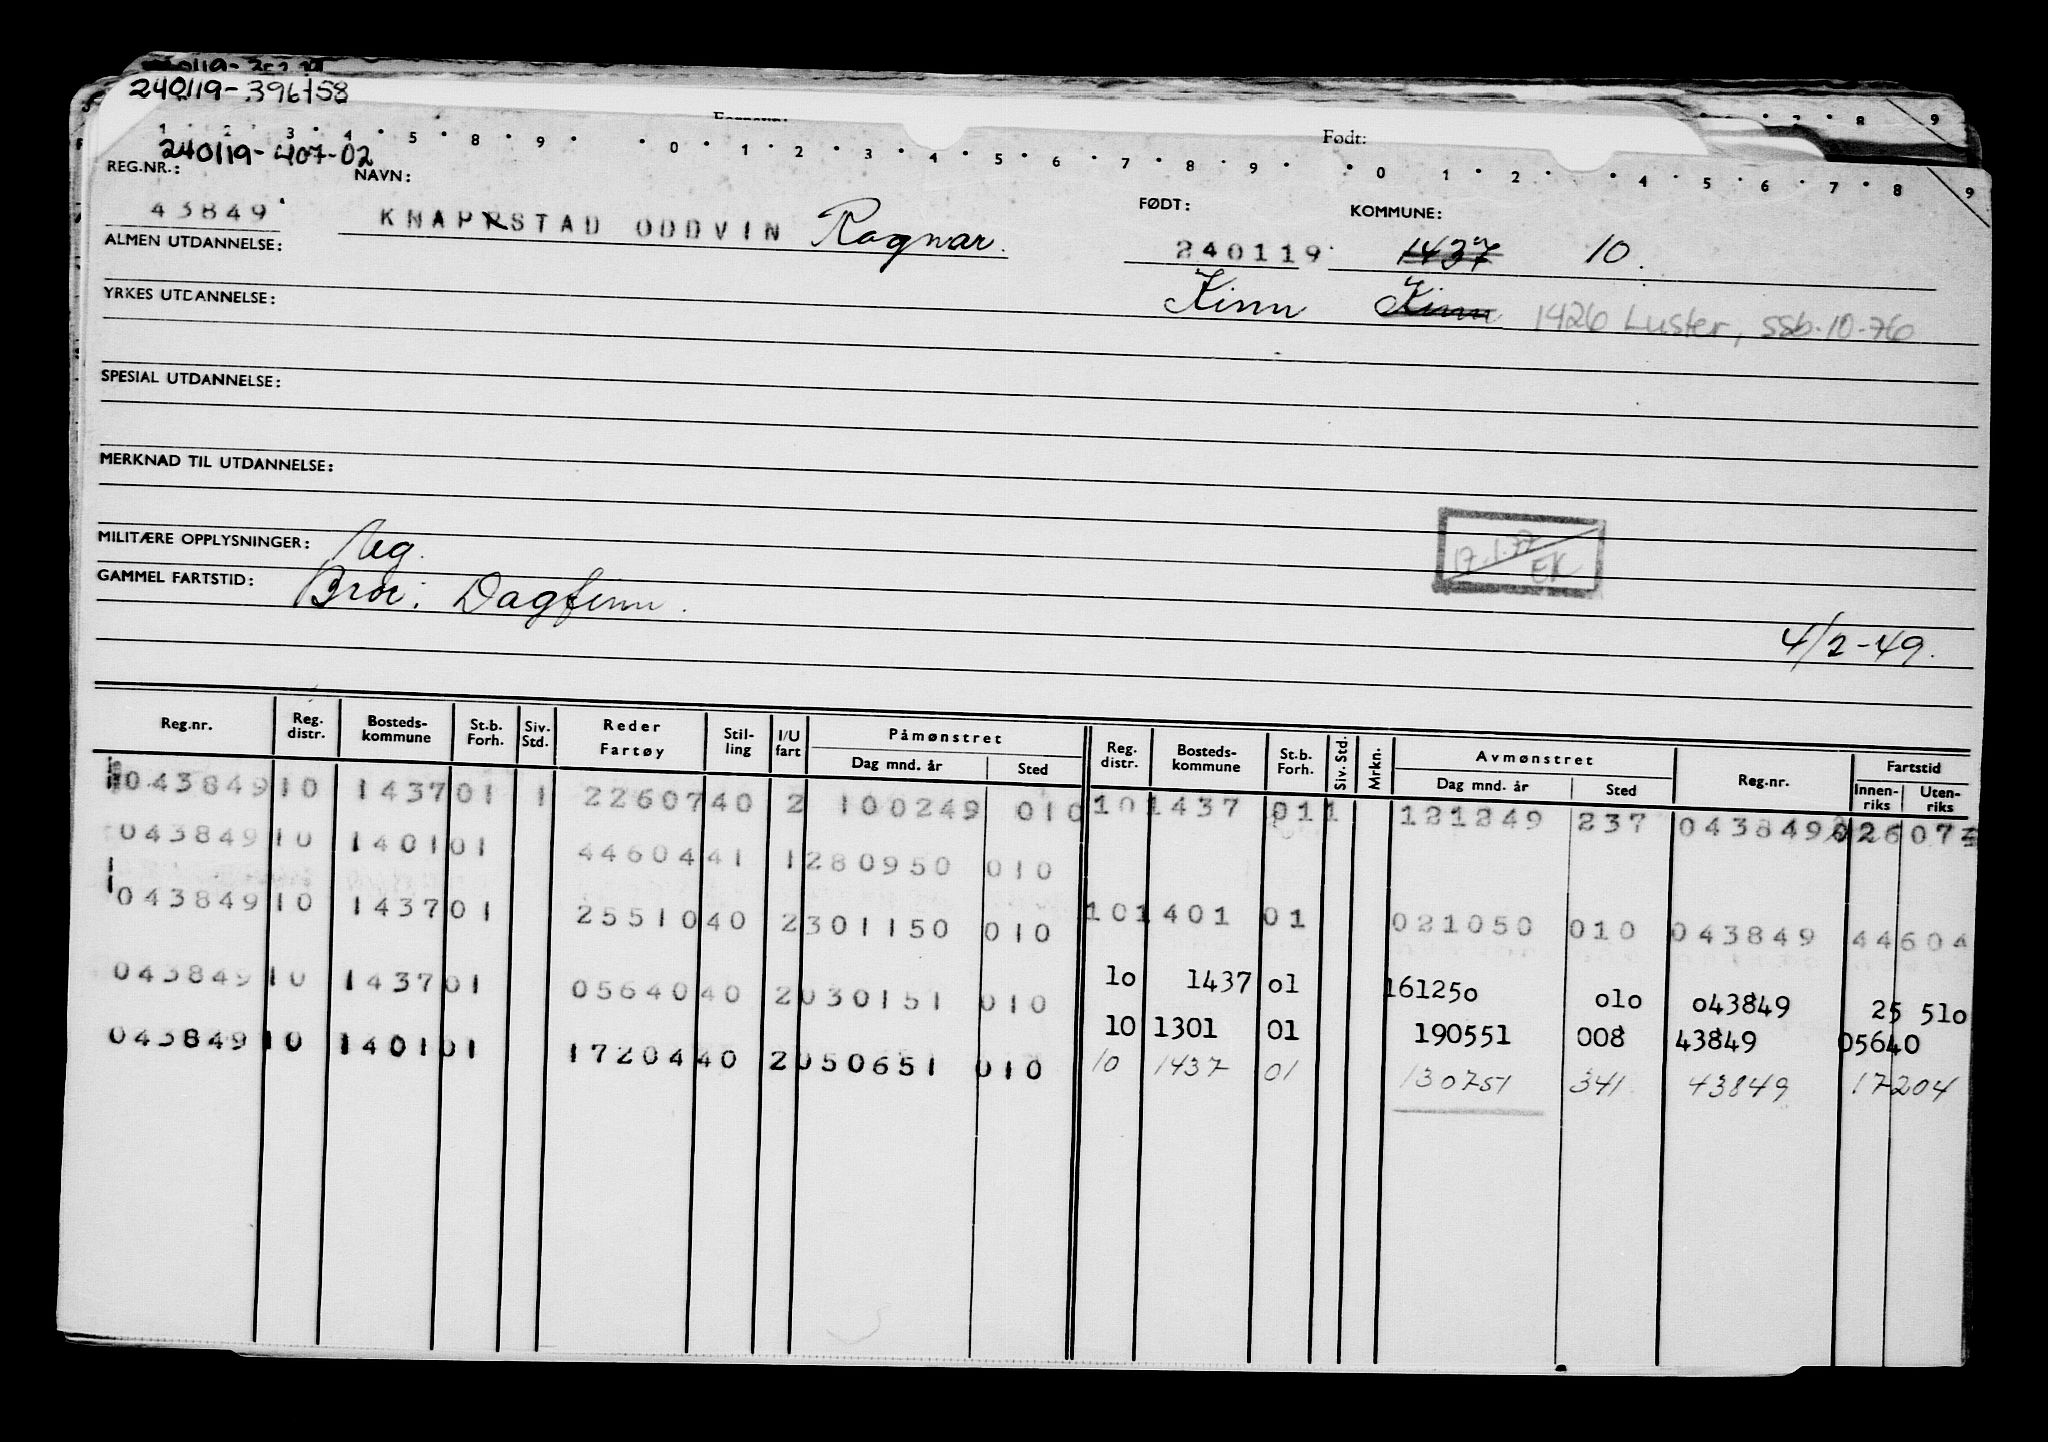 240119-396158
Født:
1 2 3 4 5 8 9 0 1 2 3 4 5 6 7 8 9 0 1 2 4 5 6 7 8 9
240119-407-02
REG.NR.: NAVN: FØDT: KOMMUNE:
43849 KNAPRSTAD ODDVIN Ragnar. 240119 1437 10.
ALMEN UTDANNELSE:
Kinn Kinn 1426 Luster, ssb.10-76
YRKES UTDANNELSE:
SPESIAL UTDANNELSE:
MERKNAD TIL UTDANNELSE:
MILITÆRE OPPLYSNINGER:
17.1.77 EK
GAMMEL FARTSTID: Bror: Dagfinn.
4/2-49.
Reg.nr. Reg. distr. Bosteds-kommune St.b. Forh. Siv. Std. Reder Fartøy Stil-ling I/U fart Påmønstret Dag mnd. år Sted Reg. distr. Bosteds-kommune St.b. Forh. Siv. Std. Mrkn. Avmønstret Dag mnd. år Sted Reg.nr. Fartstid Innen-riks Uten-riks
043849 10 1437 01 1 22607 40 2 100249 010 10 1437 01 1 121249 237 043849 02607
043849 10 1401 01 44604 41 1 280950 010
043849 10 1437 01 25510 40 2 301150 010 10 1401 01 021050 010 043849 44604
043849 10 1437 01 05640 40 2 030151 010 lo 1437 ol 16125o olo o43849 25 51o
043849 10 1401 01 17204 40 2 050651 010 10 1301 01 190551 008 43849 05640
10 1437 01 130751 341 43849 17204